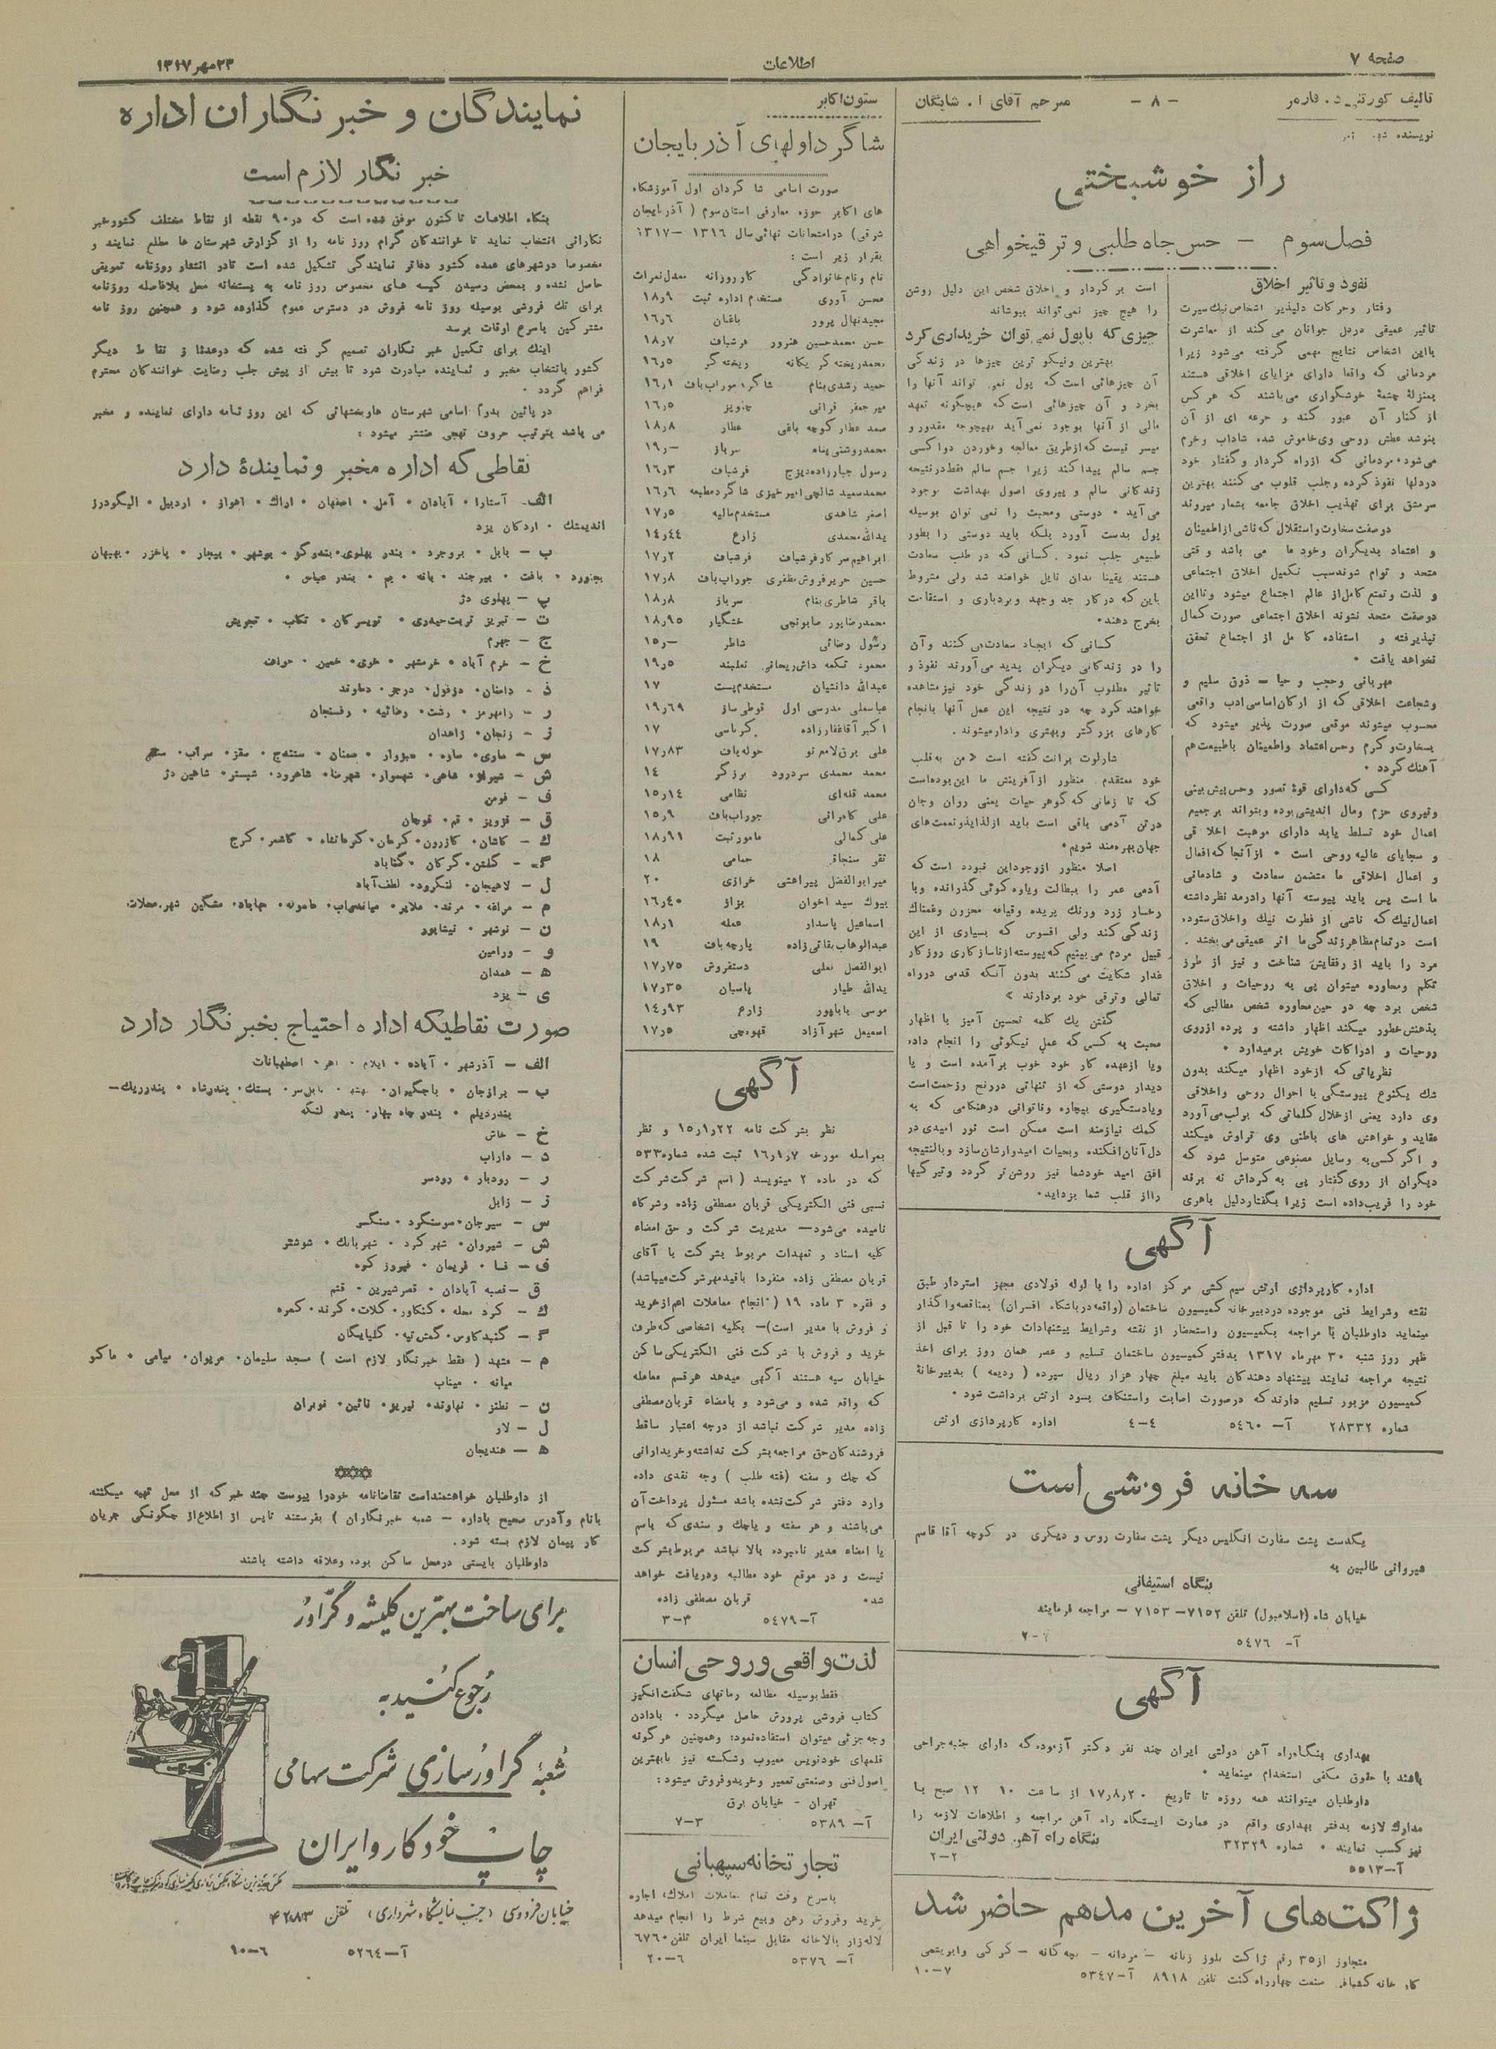 صفحه ۷
اطلاعات
۲۳ مهر ۱۳۱۷
تالیف کورتنی د. فارمر
- ۸ -
مترجم آقای ا. شایگان
راز خوشبختی
فصل سوم - حس جاه طلبی و ترقیخواهی
نفوذ و تاثیر اخلاق
رفتار و حرکات دلپذیر اشخاص نیک سیرت
تاثیر عمیقی در دل جوانان می کند از معاشرت
با این اشخاص نتایج مهمی گرفته می‌شود زیرا
مردمانی که واقعا دارای مزایای اخلاقی هستند
بمنزلهٔ چشمهٔ خوشگواری می‌باشند که هر کس
از کنار آن عبور کند و جرعه ای از آن
بنوشد عطش روحی وی خاموش شده شاداب و خرم
می‌شود. مردمانی که از راه کردار و گفتار خود
در دلها نفوذ کرده و جلب قلوب می‌کنند بهترین
سرمشق برای تهذیب اخلاق جامعه بشمار میروند
دو صفت سخاوت و استقلال که ناشی از اطمینان
و اعتماد بدیگران و خود ما می باشد وقتی
متحد و توام شوند سبب تکمیل اخلاق اجتماعی
و لذت و تمتع کامل از عالم اجتماع میشود و تا این
دو صفت متحد نشوند اخلاق اجتماعی صورت کمال
نپذیرفته و استفاده کامل از اجتماع تحقق
نخواهد یافت .
مهربانی و حجب و حیا - ذوق سلیم و
شجاعت اخلاقی که از ارکان اساسی ادب واقعی
محسوب میشوند موقعی صورت پذیر میشود که
بسخاوت و کرم و حس اعتماد و اطمینان با طبیعت هم
آهنگ گردد .
کسی که دارای قوهٔ تصور و حس پیش بینی
و نیروی حزم و مال اندیشی بوده و بتواند بر جمیع
اعمال خود تسلط یابد دارای موهبت اخلاقی
و سجایای عالیه روحی است . از آنجا که افعال
و اعمال اخلاقی ما متضمن سعادت و شادمانی
ما است پس باید پیوسته آنها را در مد نظر داشته
اعمال نیک که ناشی از فطرت نیک و اخلاق ستوده
است در تمام مظاهر زندگی ما اثر عمیقی می‌بخشد .
مرد را باید از رفقایش شناخت و نیز از طرز
تکلم و محاوره میتوان پی به روحیات و اخلاق
شخص برد چه در حین محاوره شخص مطالبی که
بذهنش خطور میکند اظهار داشته و پرده از روی
روحیات و ادراکات خویش برمیدارد .
نظریاتی که از خود اظهار میکند بدون
شک یکنوع پیوستگی با احوال روحی و اخلاقی
وی دارد یعنی از خلال کلماتی که بر لب می‌آورد
عقاید و خواهش های باطنی وی تراوش میکند
و اگر کسی به وسایل مصنوعی متوسل شود که
دیگران از روی گفتار پی به کردارش نه برند
خود را فریب داده است زیرا بگفتار دلیل باهری
است بر کردار و اخلاق شخص این دلیل روشن
را هیچ چیز نمی‌تواند بپوشاند
چیزی که با پول نمی توان خریداری کرد
بهترین و نیکو ترین چیزها در زندگی
آن چیزهائی است که پول نمی تواند آنها را
بخرد و آن چیزهائی است که هیچگونه تعهد
مالی از آنها بوجود نمی‌آید بهیچوجه مقدور و
میسر نیست که از طریق معالجه و خوردن دوا کسی
جسم سالم پیدا کند زیرا جسم سالم فقط در نتیجه
زندگانی سالم و پیروی اصول بهداشت بوجود
می‌آید . دوستی و محبت را نمی توان بوسیله
پول بدست آورد بلکه باید دوستی را بطور
طبیعی جلب نمود . کسانی که در طلب سعادت
هستند یقینا بدان نایل خواهند شد ولی مشروط
باین که در کار جد و جهد و بردباری و استقامت
بخرج دهند .
کسانی که ایجاد سعادت می کنند و آن
را در زندگانی دیگران پدید می‌آورند نفوذ و
تاثیر مطلوب آن را در زندگی خود نیز مشاهده
خواهند کرد چه در نتیجه این عمل آنها بانجام
کارهای بزرگتر و بهتری وادار میشوند .
شارلوت برانت گفته است « من به قلب
خود معتقدم منظور از آفرینش ما این بوده است
که تا زمانی که گوهر حیات یعنی روان و جان
در تن آدمی باقی است باید از لذاید و نعمت های
جهان بهره‌مند شویم .
اصلا منظور از وجود این نبوده است که
آدمی عمر را ببطالت و یاوه گوئی گذرانده و با
رخسار زرد و رنگ پریده و قیافه محزون و غمناک
زندگی کند ولی افسوس که بسیاری از این
قبیل مردم می‌بینیم که پیوسته از ناسازکاری روزگار
غدار شکایت می‌کنند بدون آنکه قدمی در راه
تعالی و ترقی خود بردارند »
گفتن یک کلمه تحسین آمیز یا اظهار
محبت به کسی که عمل نیکوئی را انجام داده
و یا از عهده کار خود خوب برآمده است و یا
دیدار دوستی که از تنهائی در رنج و زحمت است
و یا دستگیری بیچاره و ناتوانی در هنگامی که به
کمک نیازمند است ممکن است نور امیدی در
دل آنان افکنده و بحیات امیدوارشان سازد و بالنتیجه
افق امید خود شما نیز روشن تر گردد و تیرگیها
را از قلب شما بزداید.
آگهی
اداره کارپردازی ارتش سیم کشی مرکز اداره را با لوله فولادی مجهز استردار طبق
نقشه و شرایط فنی موجوده در دبیرخانه کمیسیون ساختمان (واقعه در باشگاه افسران) بمناقصه واگذار
مینماید داوطلبان با مراجعه بکمیسیون و استحضار از نقشه و شرایط پیشنهادات خود را تا قبل از
ظهر روز شنبه ۳۰ مهرماه ۱۳۱۷ بدفتر کمیسیون ساختمان تسلیم و عصر همان روز برای اخذ
نتیجه مراجعه نمایند پیشنهاد دهندگان باید مبلغ چهار هزار ریال سپرده ( ودیعه ) بدبیرخانهٔ
کمیسیون مزبور تسلیم دارند که در صورت اصابت و استنکاف بسود ارتش برداشت شود .
شماره ۲۸۳۳۲ آ- ۵۴۶۰ ۴-۴ اداره کارپردازی ارتش
سه خانه فروشی است
یکدست پشت سفارت انگلیس دیگر پشت سفارت روس و دیگری در کوچه آقا قاسم
شیروانی طالبین به
بنگاه استیفانی
خیابان شاه (اسلامبول) تلفن ۷۱۵۲- ۷۱۵۳ - مراجعه فرمایند
آ- ۵۴۷۶
آگهی
بهداری بنگاه راه آهن دولتی ایران چند نفر دکتر آزموده که دارای جنبه جراحی
باشند با حقوق مکفی استخدام مینماید .
داوطلبان میتوانند همه روزه تا تاریخ ۱۷٫۸٫۲۰ از ساعت ۱۰ تا ۱۲ صبح با
مدارک لازمه بدفتر بهداری واقع در عمارت ایستگاه راه آهن مراجعه و اطلاعات لازمه را
نیز کسب نمایند . شماره ۳۲۳۲۹ بنگاه راه آهن دولتی ایران
آ-۵۵۱۳ ۲-۲
ژاکت‌های آخرین مد هم حاضر شد
متجاوز از ۳۵ رقم ژاکت بلوز زنانه - مردانه - بچه گانه - کرکی و ابریشمی
کارخانه کشبافی صنعت چهارراه کنت تلفن ۸۹۱۸ آ-۵۳۴۷ ۷-۱۰
ستون اکابر
شاگرد اولهای آذربایجان
صورت اسامی شاگردان اول آموزشگاه
های اکابر حوزه معارفی استان سوم ( آذربایجان
شرقی ) در امتحانات نهائی سال ۱۳۱۶ -۱۳۱۷
بقرار زیر است :
نام و نام خانوادگی کار روزانه معدل نمرات
محسن آوری مستخدم اداره ثبت ۱۸٫۹
مجید نهال پرور باغبان ۱۶٫۶
حسن محمدحسین هنرور فرشباف ۱۸٫۷
محمد ریخته گر یگانه ریخته گر ۱۶٫۵
حمید رشدی بنام شاگرد جوراب باف ۱۶٫۱
میر جعفر قرانی ۱۶٫۵
صمد عطار کوچه باقی عطار ۱۸٫۸
محمد روشنی پناه سرباز ۱۹٫-
رسول جبارزاده دیزج فرشباف ۱۶٫۳
محمد سعید شالچی امیرخیزی شاگرد مطبعه ۱۶٫۶
اصغر شاهدی مستخدم مالیه ۱۷٫۵
یدالله محمدی زارع ۱۴٫۴۴
ابراهیم سرکار فرشباف فرشباف ۱۷٫۲
حسین حریرفروش مظفری جوراب باف ۱۷٫۸
باقر شاطری بنام سرباز ۱۸٫۸
محمدرضاپور صابونچی خشکبار ۱۸٫۹۵
رسول رضائی شاطر ۱۵٫-
محمود تکمه داش ریحانی نعلبند ۱۹٫۵
عبدالله دانشیان مستخدم پست ۱۷
عباسعلی مدرسی اول قوطی ساز ۱۹٫۶۹
اکبر آقا غفارزاده کرباسی ۱۷
علی برق لامع نو حوله باف ۱۷٫۸۳
محمد محمدی سردرود برزگر ۱۴
محمد قلعه‌ای نظامی ۱۵٫۱۴
علی کامرانی جوراب باف ۱۵٫۹
علی کمالی مامور ثبت ۱۸٫۹۱
حمامی ۱۸
میر ابوالفضل پیراهنی خرازی ۲۰
بیوک سید اخوان بزاز ۱۶٫۴۰
اسماعیل پاسدار عمله ۱۸٫۱
عبدالوهاب بقائی زاده پارچه باف ۱۹
ابوالفضل نعلی دستفروش ۱۷٫۷۵
یدالله طیار پاسبان ۱۷٫۳۵
موسی باباپور زارع ۱۴٫۹۳
اسمعیل شهر آزاد قهوه‌چی ۱۷٫۵
آگهی
نظر بشرکت نامه ۱۵٫۱٫۲۲ و نظر
بمراسله مورخه ۱۶٫۱٫۷ ثبت شده شماره ۵۳۳
که در ماده ۲ مینویسد ( اسم شرکت شرکت
نسبی فنی الکتریکی قربان مصطفی زاده و شرکاء
نامیده می‌شود- مدیریت شرکت و حق امضاء
کلیه اسناد و تعهدات مربوط بشرکت با آقای
قربان مصطفی زاده منفردا با قید مهر شرکت میباشد)
و فقره ۳ ماده ۱۹ ( انجام معاملات اعم از خرید
و فروش با مدیر است)- بکلیه اشخاصی که طرف
خرید و فروش با شرکت فنی الکتریکی ساکن
خیابان سپه هستند آگهی میدهد هر قسم معامله
که واقع شده و می‌شود و بامضاء قربان مصطفی
زاده مدیر شرکت نباشد از درجه اعتبار ساقط
فروشندگان حق مراجعه بشرکت نداشته و خریدارانی
که چک و سفته (فته طلب ) وجه نقدی داده
وارد دفتر شرکت نشده باشد مسئول پرداخت آن
می‌باشند و هر سفته و یا چک و سندی که باسم
یا امضاء مدیر نامبرده بالا نباشد مربوط بشرکت
نیست و در موقع خود مطالبه و دریافت خواهد
شد. قربان مصطفی زاده
آ-۵۴۷۹ ۳-۳
لذت واقعی و روحی انسان
فقط بوسیله مطالعه رمانهای شگفت انگیز
کتاب فروشی پرورش حاصل میگردد . با دادن
وجه جزئی میتوان استفاده نمود: و همچنین هر گونه
قلمهای خودنویس معیوب و شکسته نیز با بهترین
اصول فنی و صنعتی تعمیر و خرید و فروش میشود :
تهران - خیابان برق
آ- ۵۳۸۹ ۳-۷
تجارتخانه سپهبانی
باسرع وقت تمام معاملات املاک، اجاره
خرید و فروش رهن و بیع شرط را انجام میدهد
لاله‌زار بالاخانه مقابل سینما ایران تلفن ۶۷۶۰
آ- ۵۳۷۶ ۶-۲۰
نمایندگان و خبرنگاران اداره
خبر نگار لازم است
بنگاه اطلاعات تا کنون موفق شده است که در ۹۰ نقطه از نقاط مختلف کشور خبر
نگارانی انتخاب نماید تا خوانندگان گرام روزنامه را از گزارش شهرستان ها مطلع نمایند و
مخصوصا در شهرهای عمده کشور دفاتر نمایندگی تشکیل شده است تا در انتشار روزنامه تعویقی
حاصل نشده و بمحض رسیدن کیسه های مخصوص روزنامه به پستخانه محل بلافاصله روزنامه
برای تک فروشی بوسیله روزنامه فروش در دسترس عموم گذاورده شود و همچنین روزنامه
مشترکین باسرع اوقات برسد
اینک برای تکمیل خبر نگاران تصمیم گرفته شده که در عدهٔ از نقاط دیگر
کشور بانتخاب مخبر و نماینده مبادرت شود تا بیش از پیش جلب رضایت خوانندگان محترم
فراهم گردد .
در پائین بدوا اسامی شهرستان ها و بخشهائی که این روزنامه دارای نماینده و مخبر
می باشد بترتیب حروف تهجی منتشر میشود :
نقاطی که اداره مخبر و نمایندهٔ دارد
الف- آستارا . آبادان . آمل . اصفهان . اراک . اهواز . اردبیل . الیگودرز
اندیمشک . اردکان یزد
ب - بابل . بروجرد . بندر پهلوی. بندر گز . بوشهر . بیجار . باخزر . بهبهان
بجنورد . بافت . بیرجند . بانه . بم . بندر عباس .
پ - پهلوی دژ
ت - تبریز تربت حیدری . تویسرکان . تکاب . تجریش
ج - جهرم
خ - خرم آباد . خرمشهر . خوی. خمین .
د - دامغان. دزفول. دماوند
ر - رامهرمز . رشت. رضائیه . رفسنجان
ز - زنجان. زاهدان
س - ساری. ساوه . سبزوار . سمنان . سنندج . سقز. سراب.
ش - شیراز. شاهی. شهسوار. شهرضا. شاهرود. شبستر. شاهین دژ
ف - فومن
ق - قزوین . قم. قوچان
ک - کاشان. کازرون. کرمان. کرمانشاه . کاشمر. کرج
گ - گلشن. گرگان . گناباد
ل - لاهیجان. لنگرود. لطف آباد
م - مراغه . مرند. ملایر. میاندوآب. مهاباد. مشگین شهر. محلات
ن - نوشهر . نیشابور
و - ورامین
ه - همدان
ی - یزد
صورت نقاطیکه اداره احتیاج بخبر نگار دارد
الف - آذرشهر . آباده . ایلام . اهر. اصطهبانات
ب - برازجان . باجگیران. بابل سر. بستک. بندرشاه . بندر ریگ-
بندر دیلم . بندر چاه بهار. بندر لنگه
خ - خاش
د - داراب
ر - رودبار . رودسر
ز - زابل
س - سیرجان. سوسنگرد . سنگسر
ش - شیروان. شهر کرد . شهر بابک . شوشتر
ف - فسا . فریمان . فیروز کوه
ق - قصبه آبادان . قصر شیرین . قشم
ک - کرد محله . کنگاور. کلات. کرند. کمره
گ - گنبد کاوس. گمش تپه. گلپایگان
م - مشهد ( فقط خبرنگار لازم است ) مسجد سلیمان. مریوان. میامی . ماکو
میانه . میناب
ن - نطنز . نهاوند. نیریز. نائین. نوبران
ل - لار
ه - هندیجان
از داوطلبان خواهشمند است تقاضانامه خود را پیوست چند خبر که از محل تهیه میکنند
با نام و آدرس صحیح باداره - شعبه خبرنگاران ) بفرستند تا پس از اطلاع از چگونگی جریان
کار پیمان لازم بسته شود.
داوطلبان بایستی در محل ساکن بوده و علاقه داشته باشند
برای ساخت بهترین کلیشه و گراور
رجوع کنید به
شعبهٔ گراورسازی شرکت سهامی
چاپ خودکار و ایران
خیابان فردوسی (جنب نمایشگاه شهرداری) تلفن ۴۲۸۳
آ-۵۲۶۴ ۶-۱۰